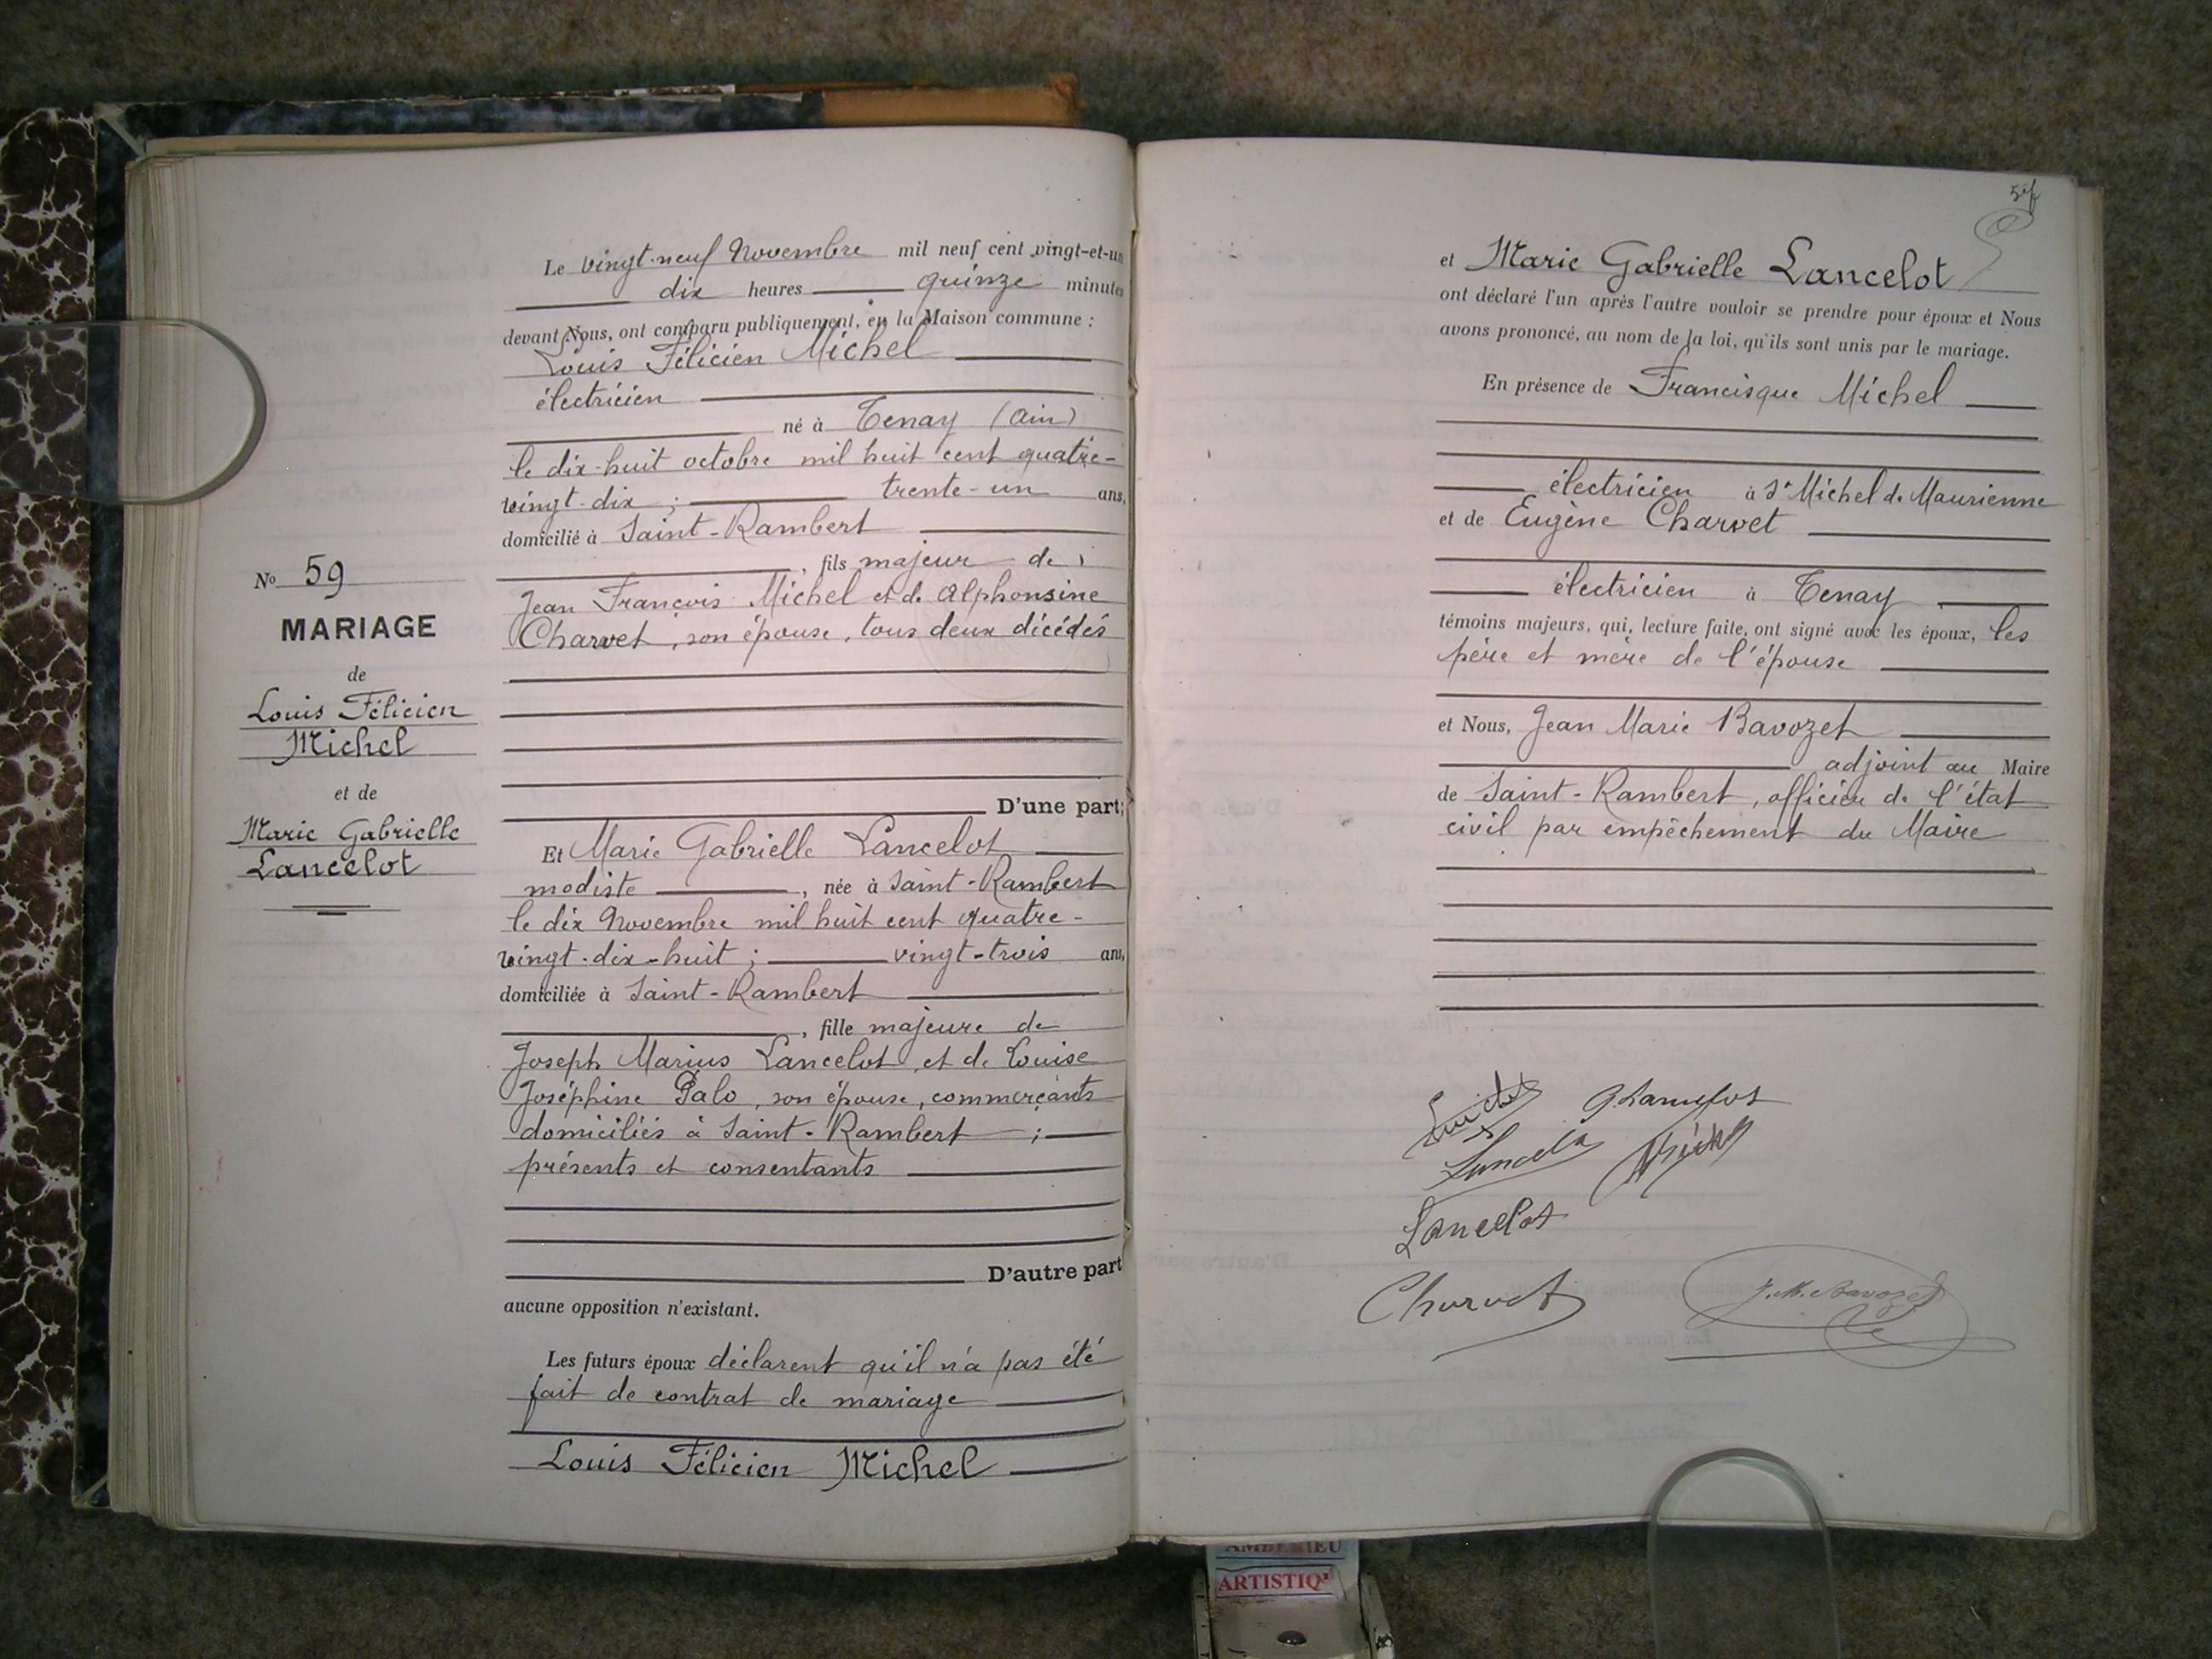 No 59
MARIAGE
de
Louis Félicien
Michel
et de
Marie Gabrielle
Lancelot
Le vingt-neuf Novembre mil neuf cent vingt-et-un
dix heures quinze minutes
devant Nous, ont comparu publiquement, en la Maison commune :
Louis Félicien Michel
électricien
né à Tenay (Ain)
le dix-huit octobre mil huit cent quatre-
vingt-dix ; trente-un ans,
domicilié à Saint-Rambert
, fils majeur de
Jean François Michel et de Alphonsine
Charvet, son épouse, tous deux décédés
D'une part;
Et Marie Gabrielle Lancelot
modiste , née à Saint-Rambert
le dix Novembre mil huit cent quatre-
vingt-dix-huit ; vingt-trois ans,
domiciliée à Saint-Rambert
, fille majeure de
Joseph Marius Lancelot, et de Louise
Joséphine Palo, son épouse, commerçants
domiciliés à Saint-Rambert ;
présents et consentants
D'autre part
aucune opposition n'existant.
Les futurs époux déclarent qu'il n'a pas été
fait de contrat de mariage
Louis Félicien Michel
et Marie Gabrielle Lancelot
ont déclaré l'un après l'autre vouloir se prendre pour époux et Nous
avons prononcé, au nom de la loi, qu'ils sont unis par le mariage.
En présence de Francisque Michel
électricien à St Michel de Maurienne
et de Eugène Charvet
électricien à Tenay
témoins majeurs, qui, lecture faite, ont signé avec les époux, les
père et mère de l'épouse
et Nous, Jean Marie Bavozet
adjoint au Maire
de Saint-Rambert, officier de l'état
civil par empêchement du Maire
G. Lancelot
Lancelot
Michel
Lancelot
Charvet
J. M. Bavozet
AMBERIEU
ARTISTIQ